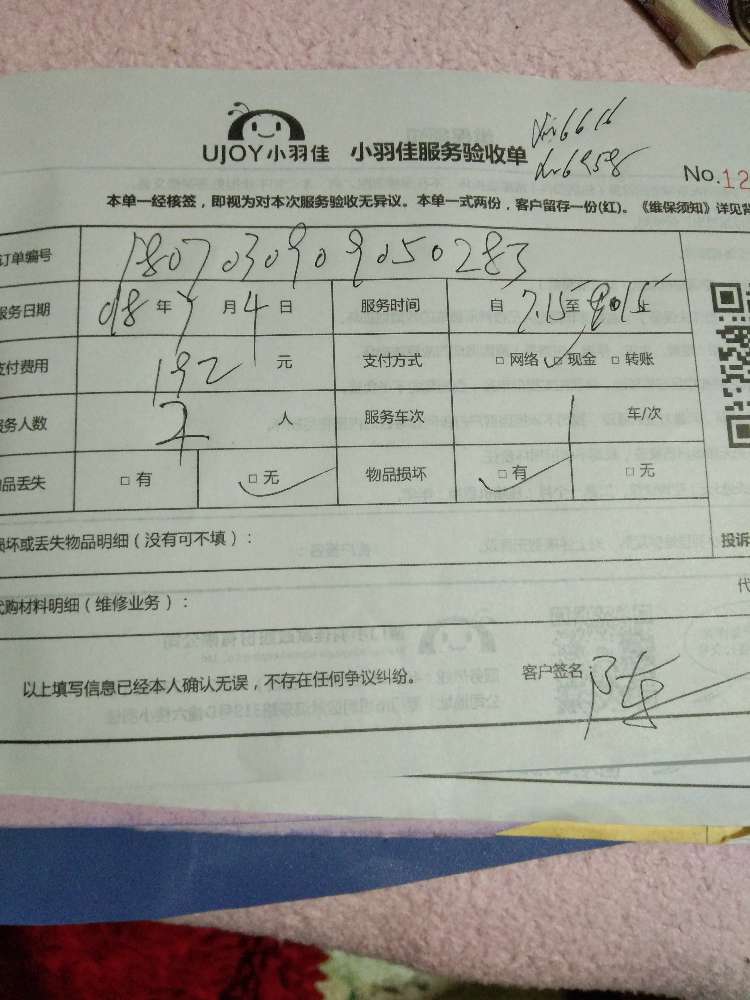 UJOY小羽佳 小羽佳服务验收单
No.12
本单一经核签，即视为对本次服务验收无异议。本单一式两份，客户留存一份(红)。《维保须知》详见背
订单编号 1807030909050283
服务日期 08 年 7 月 4 日 服务时间 自 7.15 至 止
支付费用 192 元 支付方式 □ 网络 □ 现金 □ 转账
服务人数 人 服务车次 1 车/次
物品丢失 □ 有 □ 无 物品损坏 □ 有 □ 无
损坏或丢失物品明细（没有可不填）： 投诉
代购材料明细（维修业务）： 代
以上填写信息已经本人确认无误，不存在任何争议纠纷。 客户签名： 陈